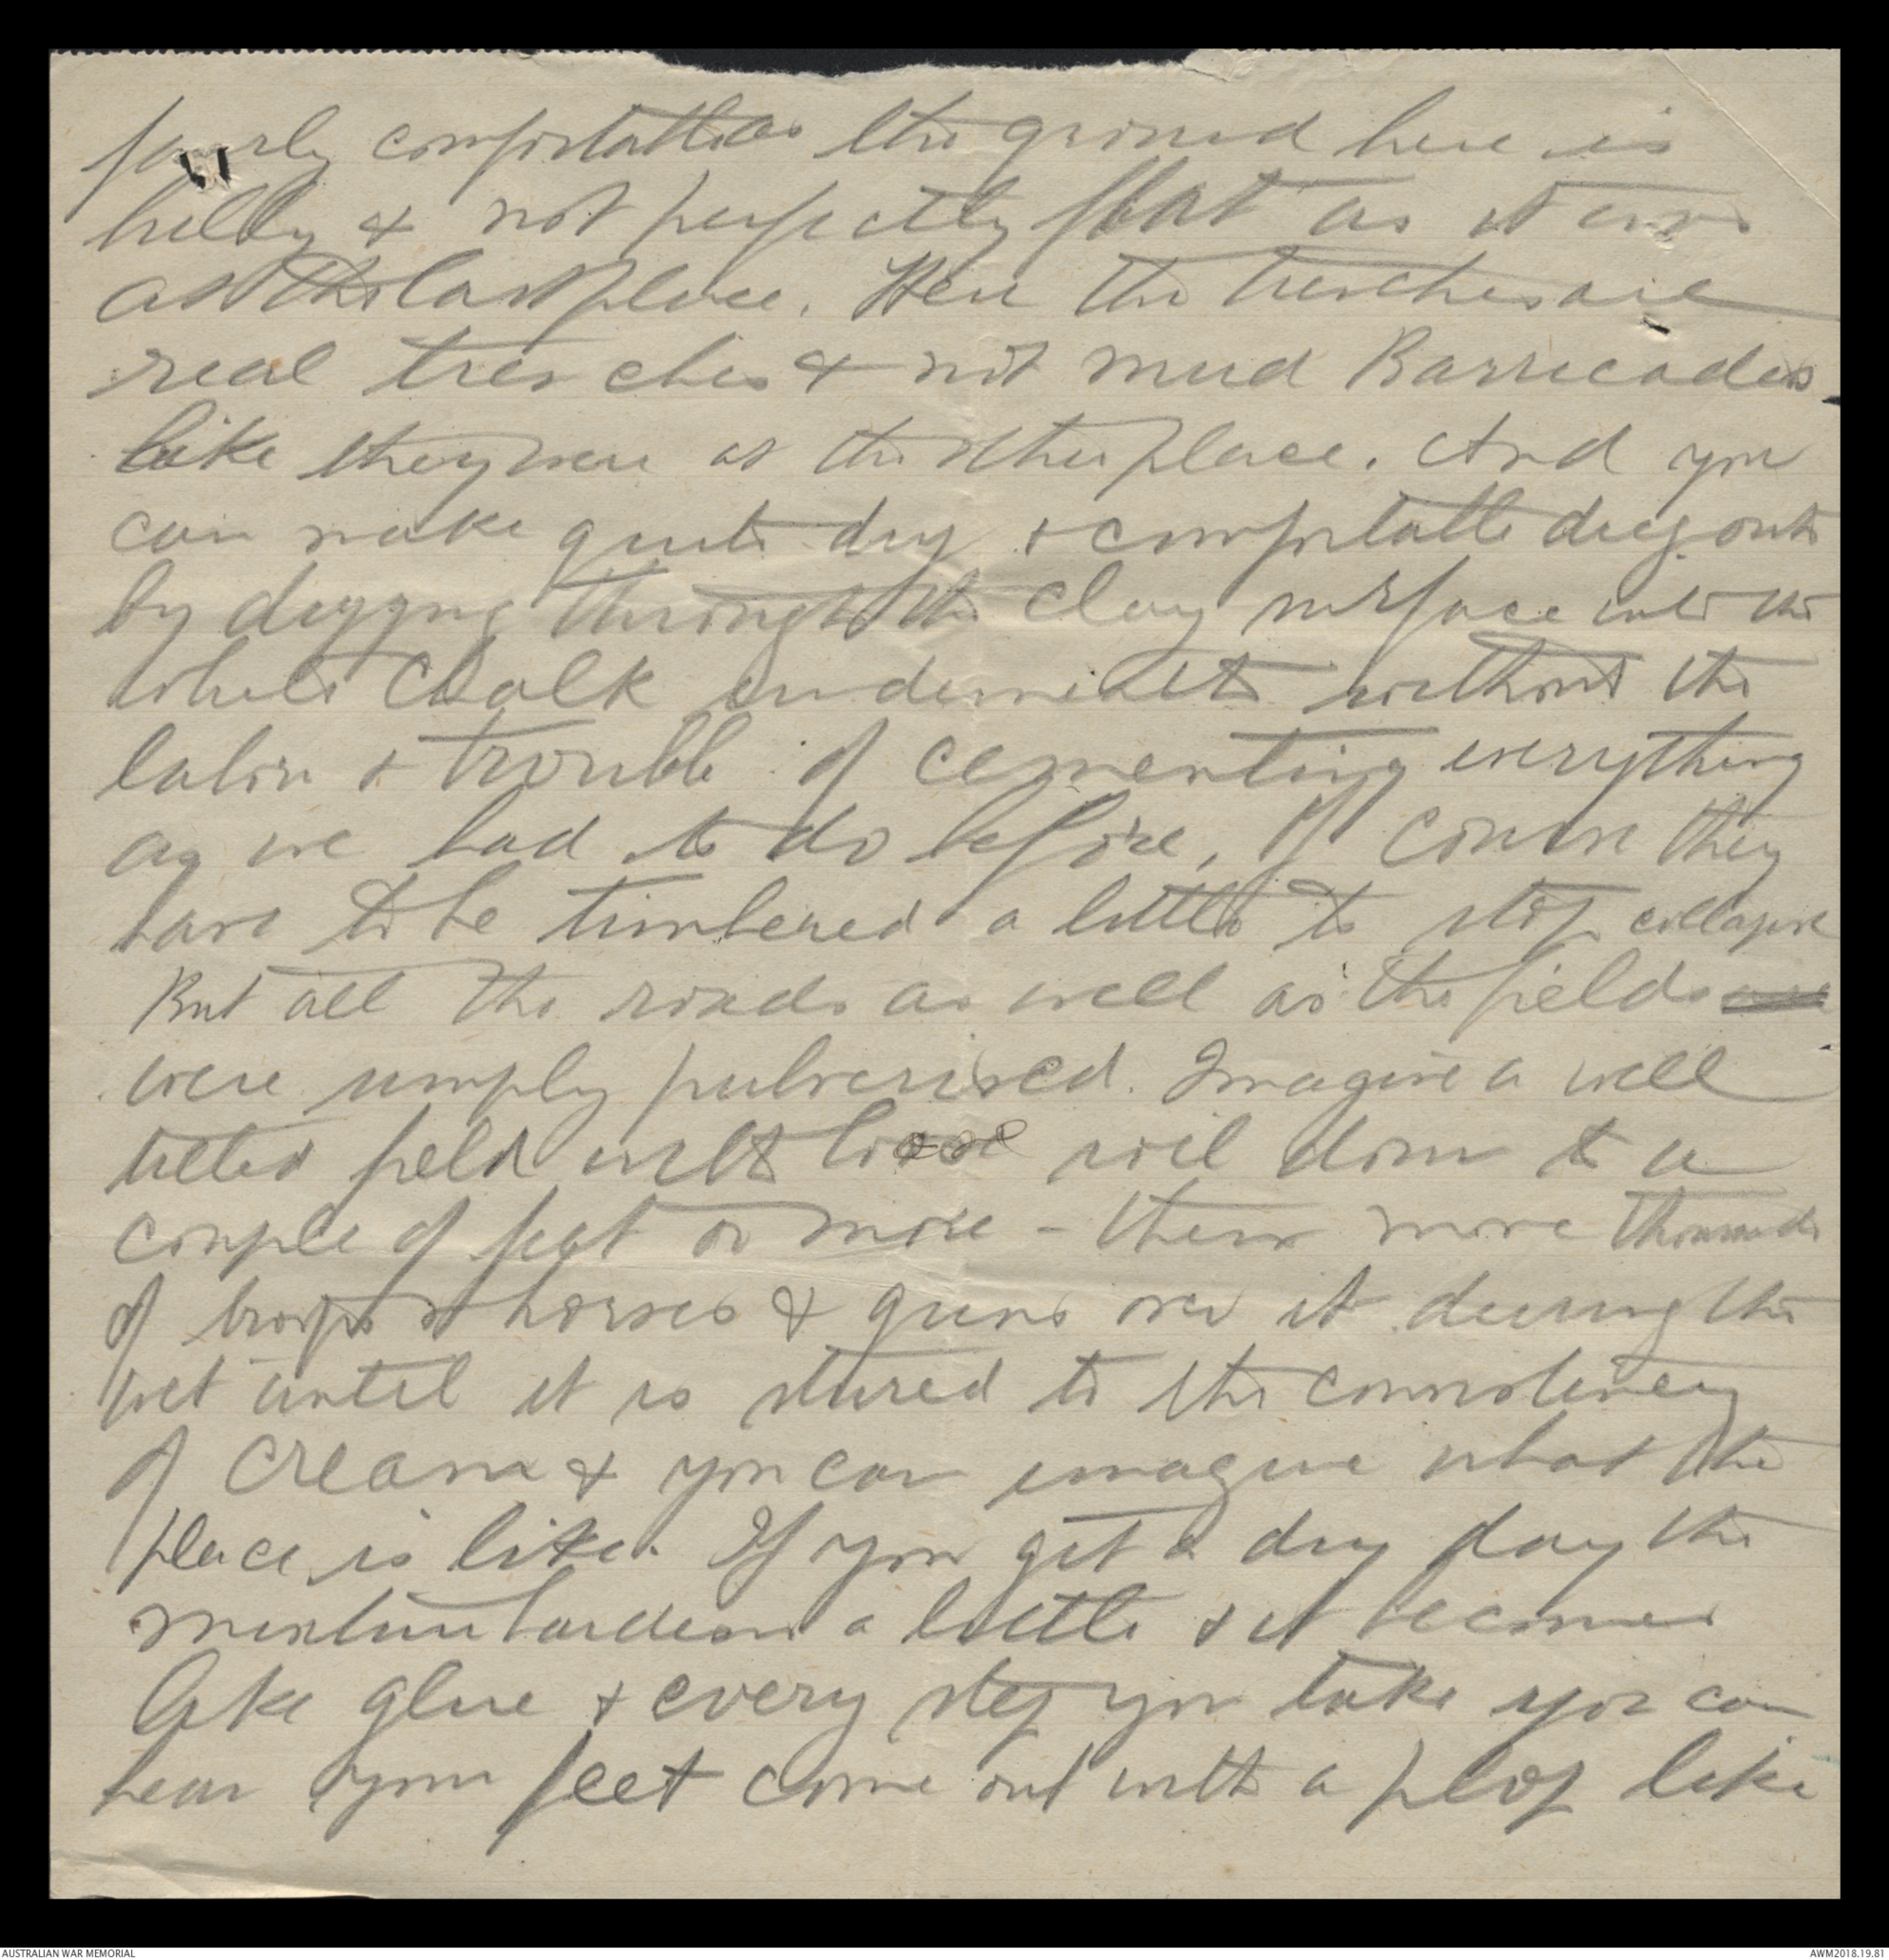 fairly comfortable as the ground here is
hilly & not perfectly flat as it was
at the last place. Here the trenches are
real trenches & not mud Barricades
like they were at the other place. And you
can make quite dry & comfortable dug outs
by digging through the clay surface into the
white chalk underneath without the
labor & trouble of cementing everything
as we had to do before. Of course they
have to be timbered a little to stop collapse
But all the roads as well as the fields are
were simply pulverised. Imagine a well
tilled field with loose soil down to a
couple of feet or more - then move thousands
of troops & horses & guns over it during the
wet until it is stired to the consistency
of cream & you can imagine what the
place is like. If you get a dry day the
mixture hardens a little & it becomes
like glue & every step you take you can
hear your feet come out with a plop like
AUSTRALIAN WAR MEMORIAL
AWM2018.19.81